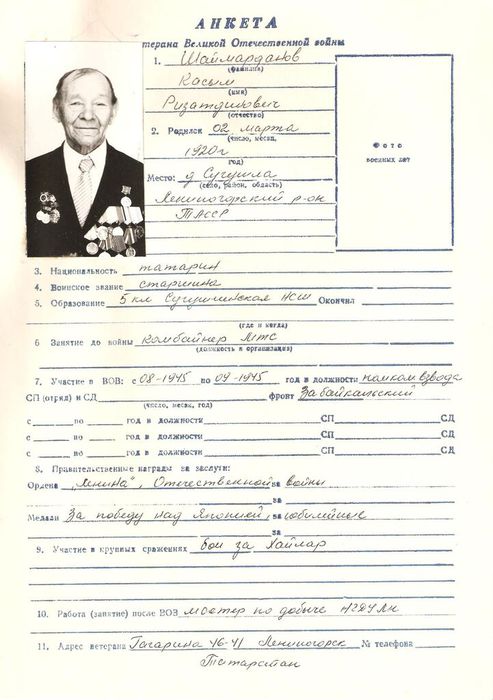 АНКЕТА
терана Великой Отечественной войны
1. Шаймарданов
(фамилия)
Касым
(имя)
Ризатдинович
(отчество)
2. Родился 02 марта
(число, месяц,
1920г
год)
Место: д Сугушла
(село, район, область)
Лениногорский р-он
ТАССР
Фото
военных лет
3. Национальность татарин
4. Воинское звание старшина
5. Образование 5 кл Сугушлинская НСШ Окончил
(где и когда)
6 Занятие до войны комбайнер МТС
(должность и организация)
7. Участие в ВОВ: с 08-1945 по 09-1945 год в должности помком взвода
СП (отряд) и СД фронт Забайкальский
(число, месяц, год)
с по год в должности СП СД
с по год в должности СП СД
с по год в должности СП СД
8. Правительственные награды за заслуги:
Ордена „Ленина", Отечественной за войны
за
Медали За победу над Японией, за юбилейные
за
9. Участие в крупных сражениях бои за Хайлар
10. Работа (занятие) после ВОВ мастер по добыче НГДУ Лн
11. Адрес ветерана Гагарина 46-41 Лениногорск № телефона
Татарстан